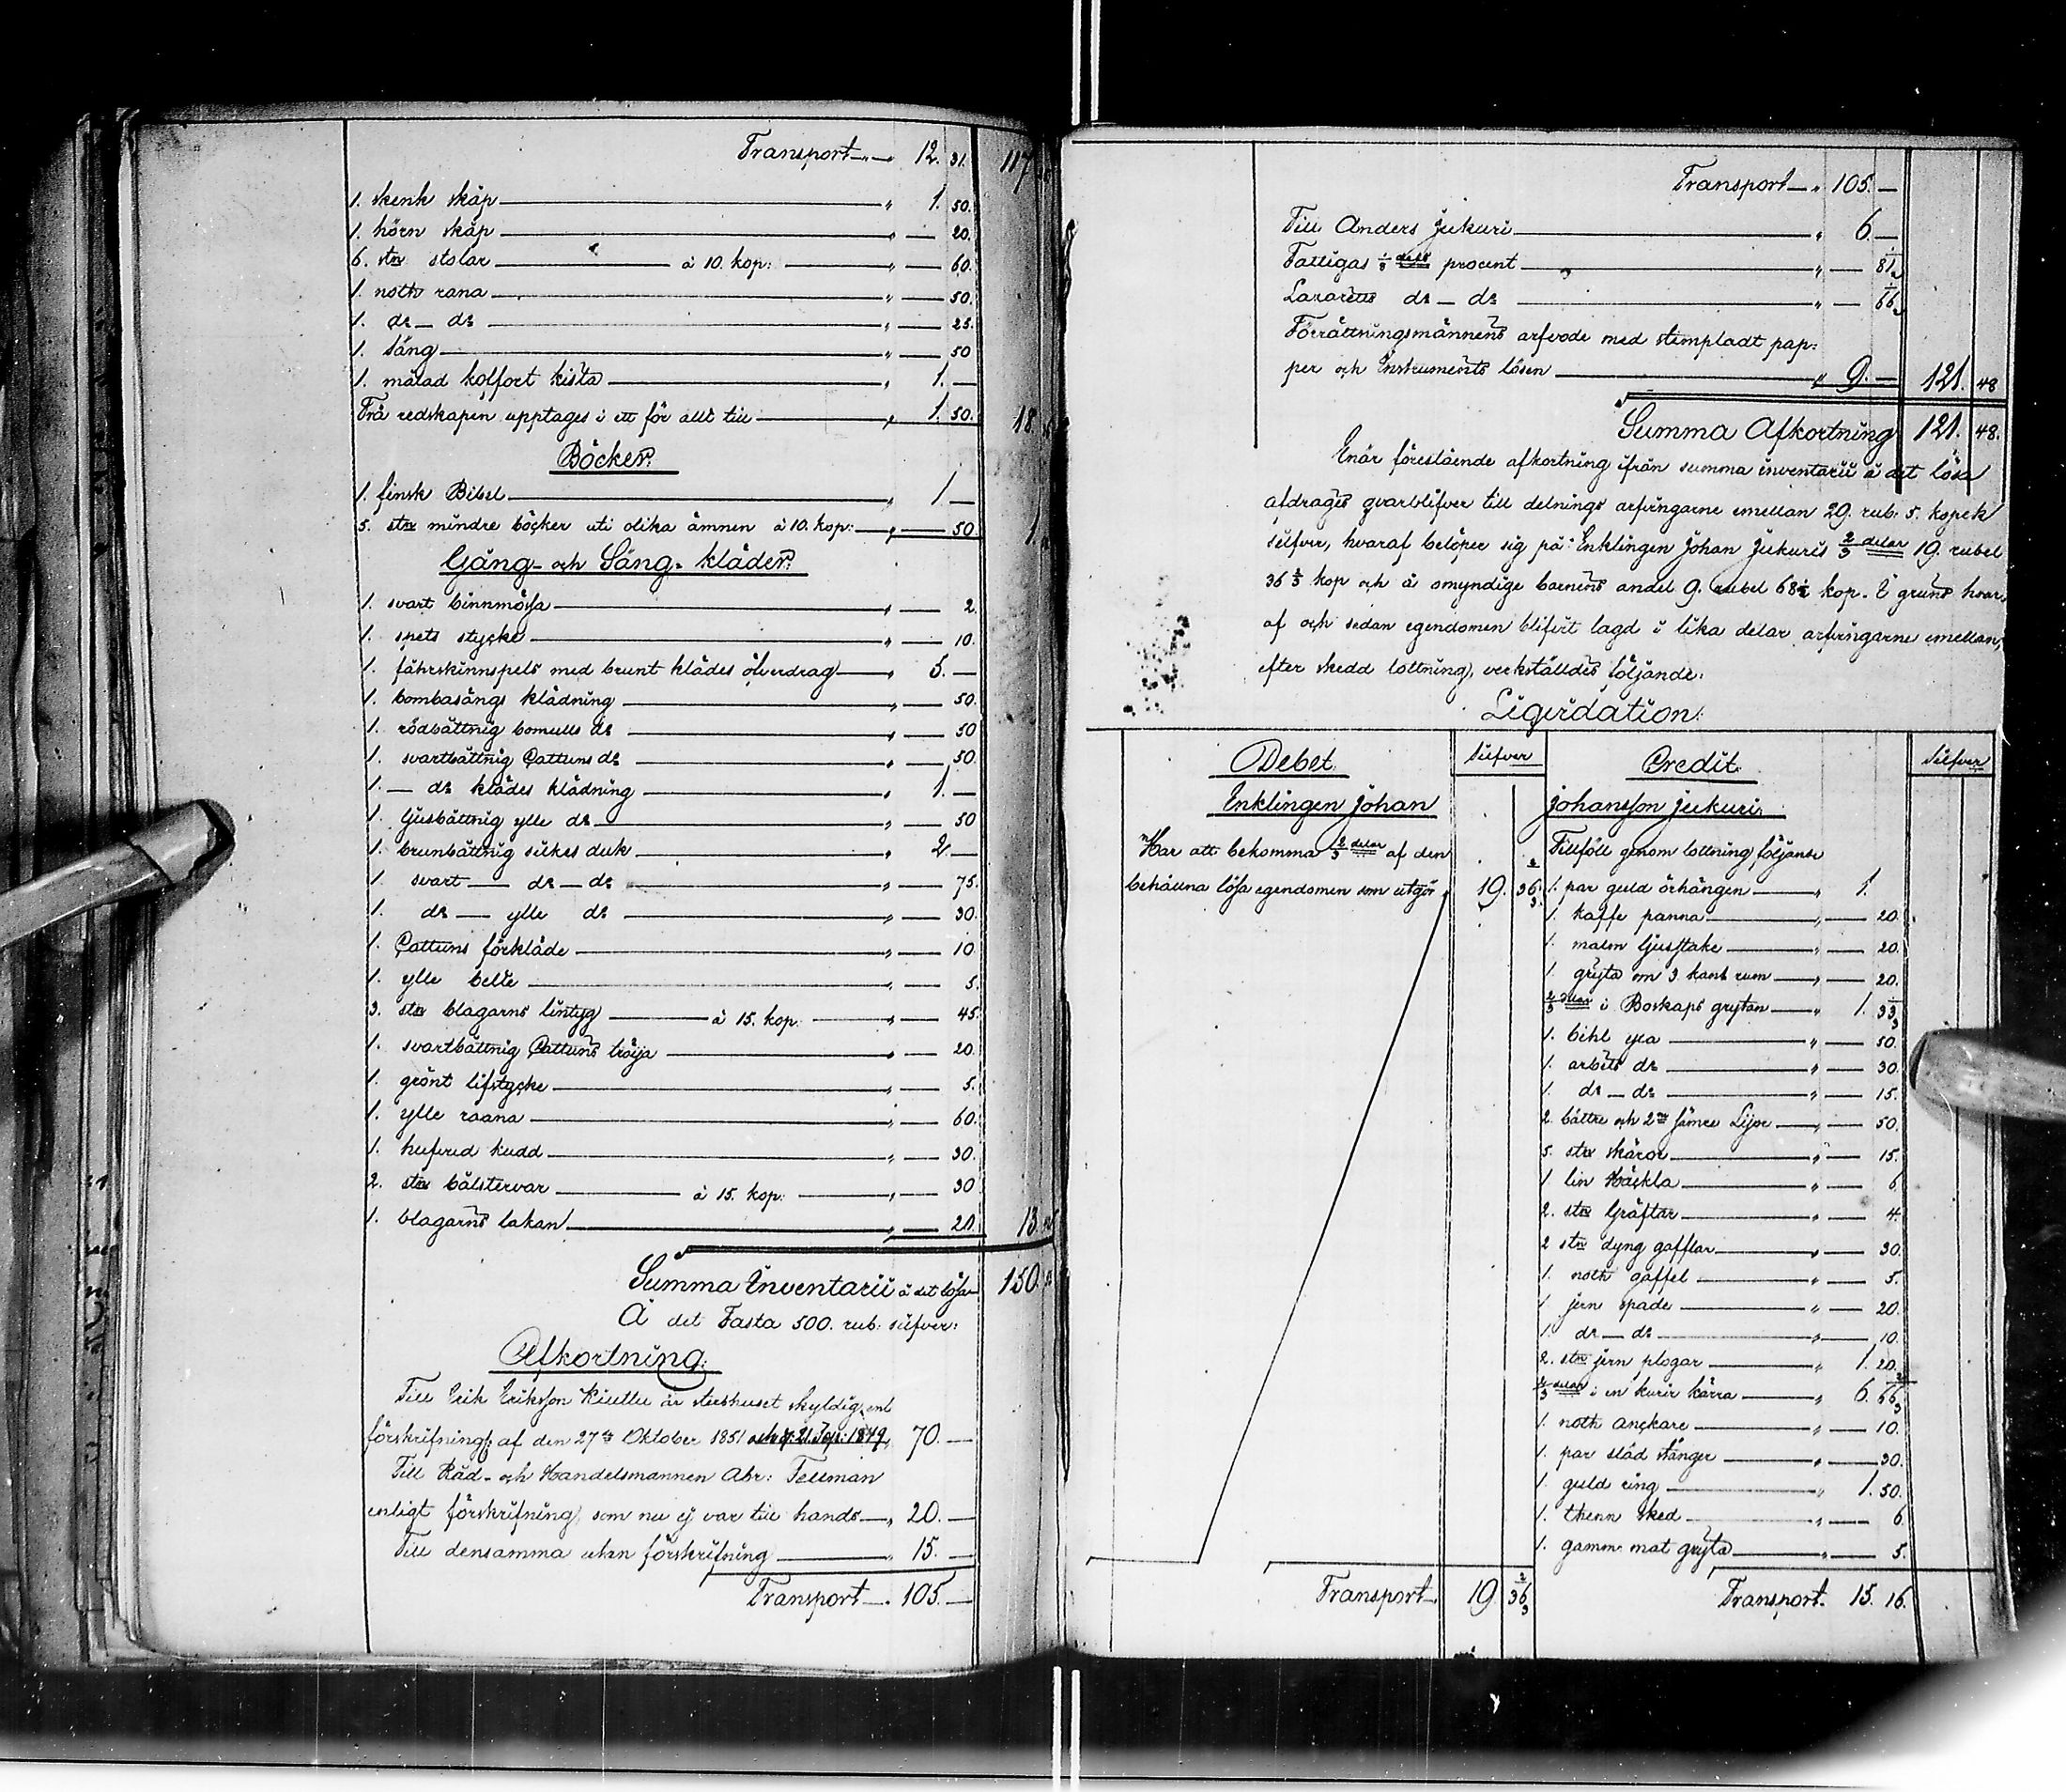 Transport 12. 31. 117
1. skenk skåp " 1. 50.
1. hörn skåp " — 20.
6. st:r stolar à 10. kop: " — 60.
1. noth rana " — 50.
1. d:o — d:o " — 25.
1. säng " — 50
1. målad kolfort kista " 1. —
Trä redskapen upptages i ett för allt till " 1. 50. 18.
Böcker.
1. finsk Bibel " 1. —
5. st:r mindre böcker uti olika ämnen à 10. kop: " — 50. 1.
Gång- och Säng-kläder.
1. svart binnmössa " — 2.
1. spets stycke " — 10.
1. fåhrskinnspels med brunt klädes öfverdrag " 5. —
1. bombasängs klädning " — 50.
1. rödbåttnig bomulls d:o " — 50
1. svartbåttnig Cattuns d:o " — 50.
1. — d:o klädes klädning " 1. —
1. ljusbåttnig ylle d:o " — 50
1. brunbåttnig silkes duk " 2. —
1. svart — d:o — d:o " — 75.
1. d:o — ylle d:o " — 30.
1. Cattuns förkläde " — 10
1. ylle belte " — 5.
3. st:r blagarns lintyg à 15. kop. " — 45.
1. svartbåttnig Cattuns tröija " — 20.
1. grönt lifstycke " — 5.
1. ylle raana " — 60.
1. hufvud kudd " — 30.
2. st:r bålstervar à 15. kop: " — 30
1. blagarns lakan " — 20. 13.
Summa Inventarii à det lösa 150.
Å det Fasta 500. rub: silfver:
Afkortning:
Till Erik Eriksson Kiuttu är sterbhuset skyldig, enl
förskrifning af den 27:de Oktober 1851 och d: 21. Sep: 1849. 70. —
Till Råd- och Handelsmannen Abr: Fellman
enligt förskrifning som nu ej var till hands " 20. —
Till densamma utan förskrifning " 15. —
Transport 105. —
Transport " 105. —
Till Anders Jukuri " 6. —
Fattigas 1/8 dels procent " — 81
Lazaretts d:o — d:o " — 66
Förrättningsmännens arfvode med stempladt pap:
per och Instruments lösen " 9. — 121. 48
Summa Afkortning 121. 48.
Enär föreslående afkortning ifrån summa inventarii å det lösa
afdrages qvarblifver till delnings arfvingarne emellan 29. rub: 5. kopek
silfver, hvaraf belöper sig på: Enklingen Johan Jukuris 2/3 delar 19. rubel
36 2/3 kop och å omyndige barnens andel 9. rubel 68 1/3 kop. I grund hvar
af och sedan egendomen blifvit lagd i lika delar arfvingarne emellan,
efter skedd lottning, verkställdes följande:
Liqvidation:
Debet. Silfver Credit. Silfver
Enklingen Johan Johansson Jukuri.
Har att bekomma 2/3 delar af den
behållna lösa egendomen som utgör 19. 36 2/3
Tillföll genom lottning följande
1. par guld örhängen " 1.
1. kaffe panna " — 20.
1. malm ljusstake " — 20.
1. gryta om 3 kant rum " — 20.
2/3 delar i Boskaps grytan " 1. 33 1/3
1. bihl yxa " — 50.
1. arbets d:o " — 30.
1. d:o — d:o " — 15.
2. båttre och 2:ne sämre Lijor " — 50.
5. st:r skäror " — 15.
1 lin Häckla " — 6
2. st:r Gräftar " — 4.
2 st:r dyng gafflar " — 30.
1. noth gaffel " — 5.
1 jern spade " — 20.
1. d:o — d:o " — 10.
2. st:r jern plogar " 1. 20.
2/3 delar i en kurir kärra " 6. 66 2/3
1. noth anckare " — 10.
1. par släd stänger " — 30.
1 guld ring " 1. 50.
1. thenn sked " — 6
1. gamm: mat gryta " — 5.
Transport 19 36 2/3 Transport. 15. 16.